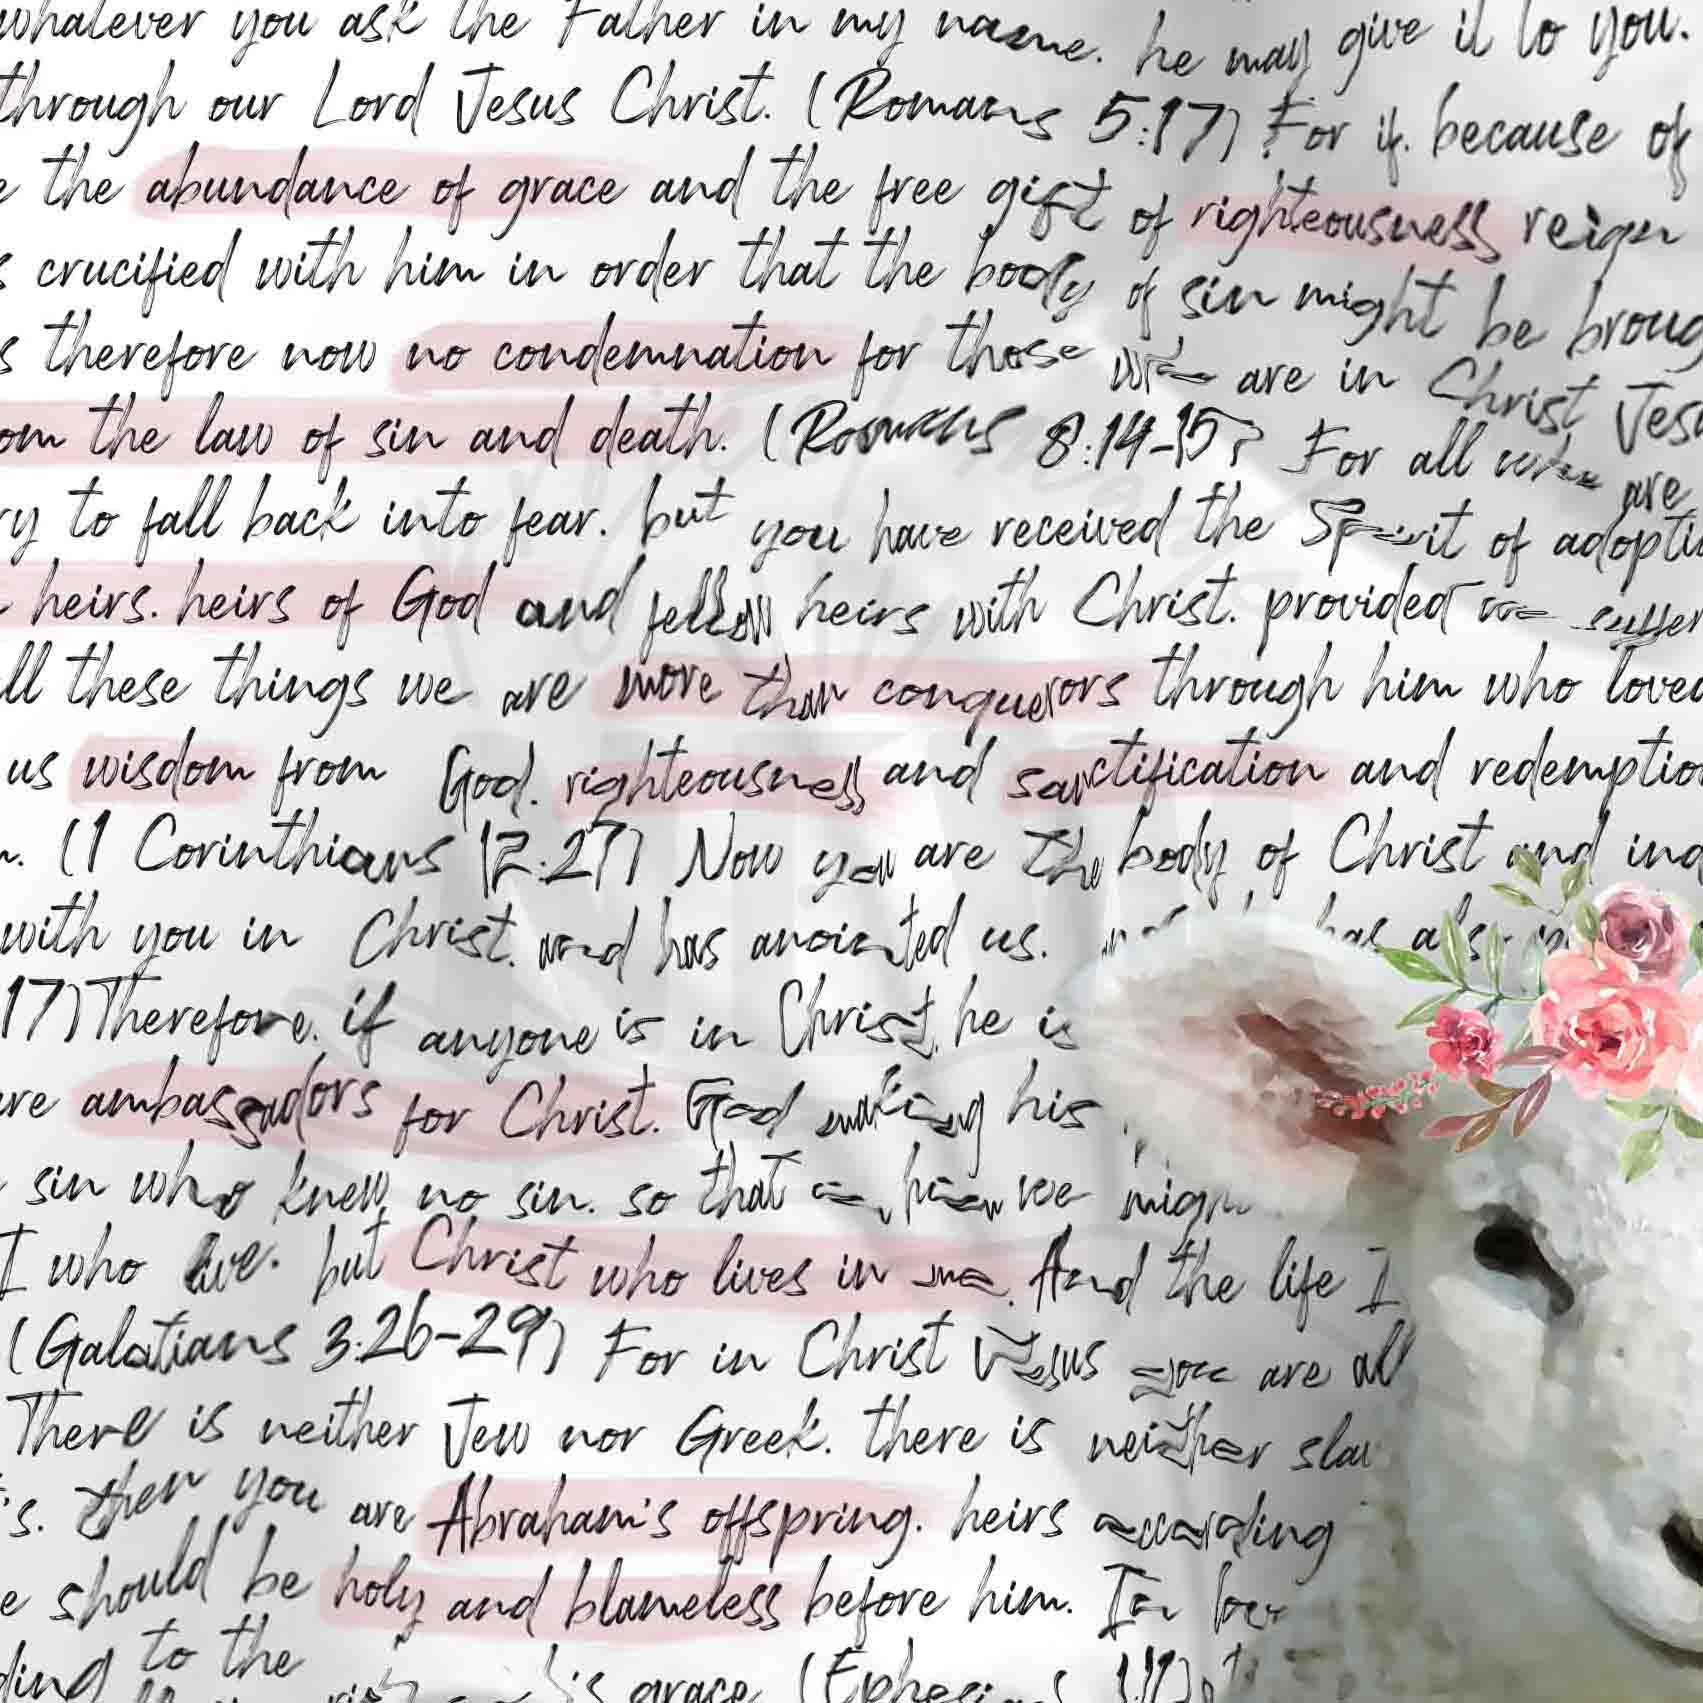 whatever you ask the Father in my name. he may give it to you.
through our Lord Jesus Christ. (Romans 5:17) For if. because of
the abundance of grace and the free gift of righteousness reign
crucified with him in order that the body of sin might be broug
therefore now no condemnation for those who are in Christ Jesu
om the law of sin and death. (Romans 8:14-15) For all who are
ry to fall back into fear. but you have received the Spirit of adopti
heirs. heirs of God and fellow heirs with Christ. provided we suffer
ll these things we are more than conquerors through him who loved
us wisdom from God. righteousness and sanctification and redemptio
(1 Corinthians 12:27) Now you are the body of Christ and ind
with you in Christ. and has anointed us. has also
17) Therefore. if anyone is in Christ. he is
re ambassadors for Christ. God making his
sin who knew no sin. so that in him we migh
I who live. but Christ who lives in me. And the life I
(Galatians 3:26-29) For in Christ Jesus you are all
There is neither Jew nor Greek. there is neither slav
's. then you are Abraham's offspring. heirs according
e should be holy and blameless before him. In love
ding to the 's grace (Ephesians